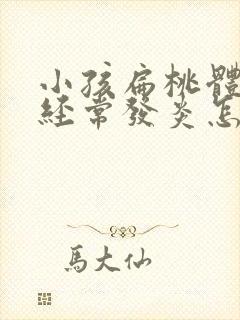 小孩扁桃體
經常發炎怎
馬大仙